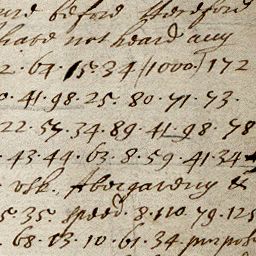 before Hereford
have not heard any
2. 64. 15. 34 [1000.] 172
0. 41. 98. 25. 80. 71. 73.
22. 57. 34. 89. 41. 98. 78
. 43. 44. 63. 8. 59. 41. 34
Usk. Abergaveny &
5. 35. speed. 8. 110. 79. 125
. 68. 13. 10. 61. 34 purpos